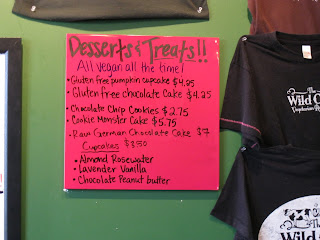 Desserts & Treats!!
All vegan all the time!
• Gluten free pumpkin cupcake $4.25
• Gluten free chocolate Cake $4.25
• Chocolate Chip Cookies $2.75
• Cookie Monster Cake $5.75
• Raw German Chocolate Cake $7
Cupcakes $3.50
• Almond Rosewater
• Lavender Vanilla
• Chocolate Peanut butter
The
Wild C
Vegetarian
The
Wild